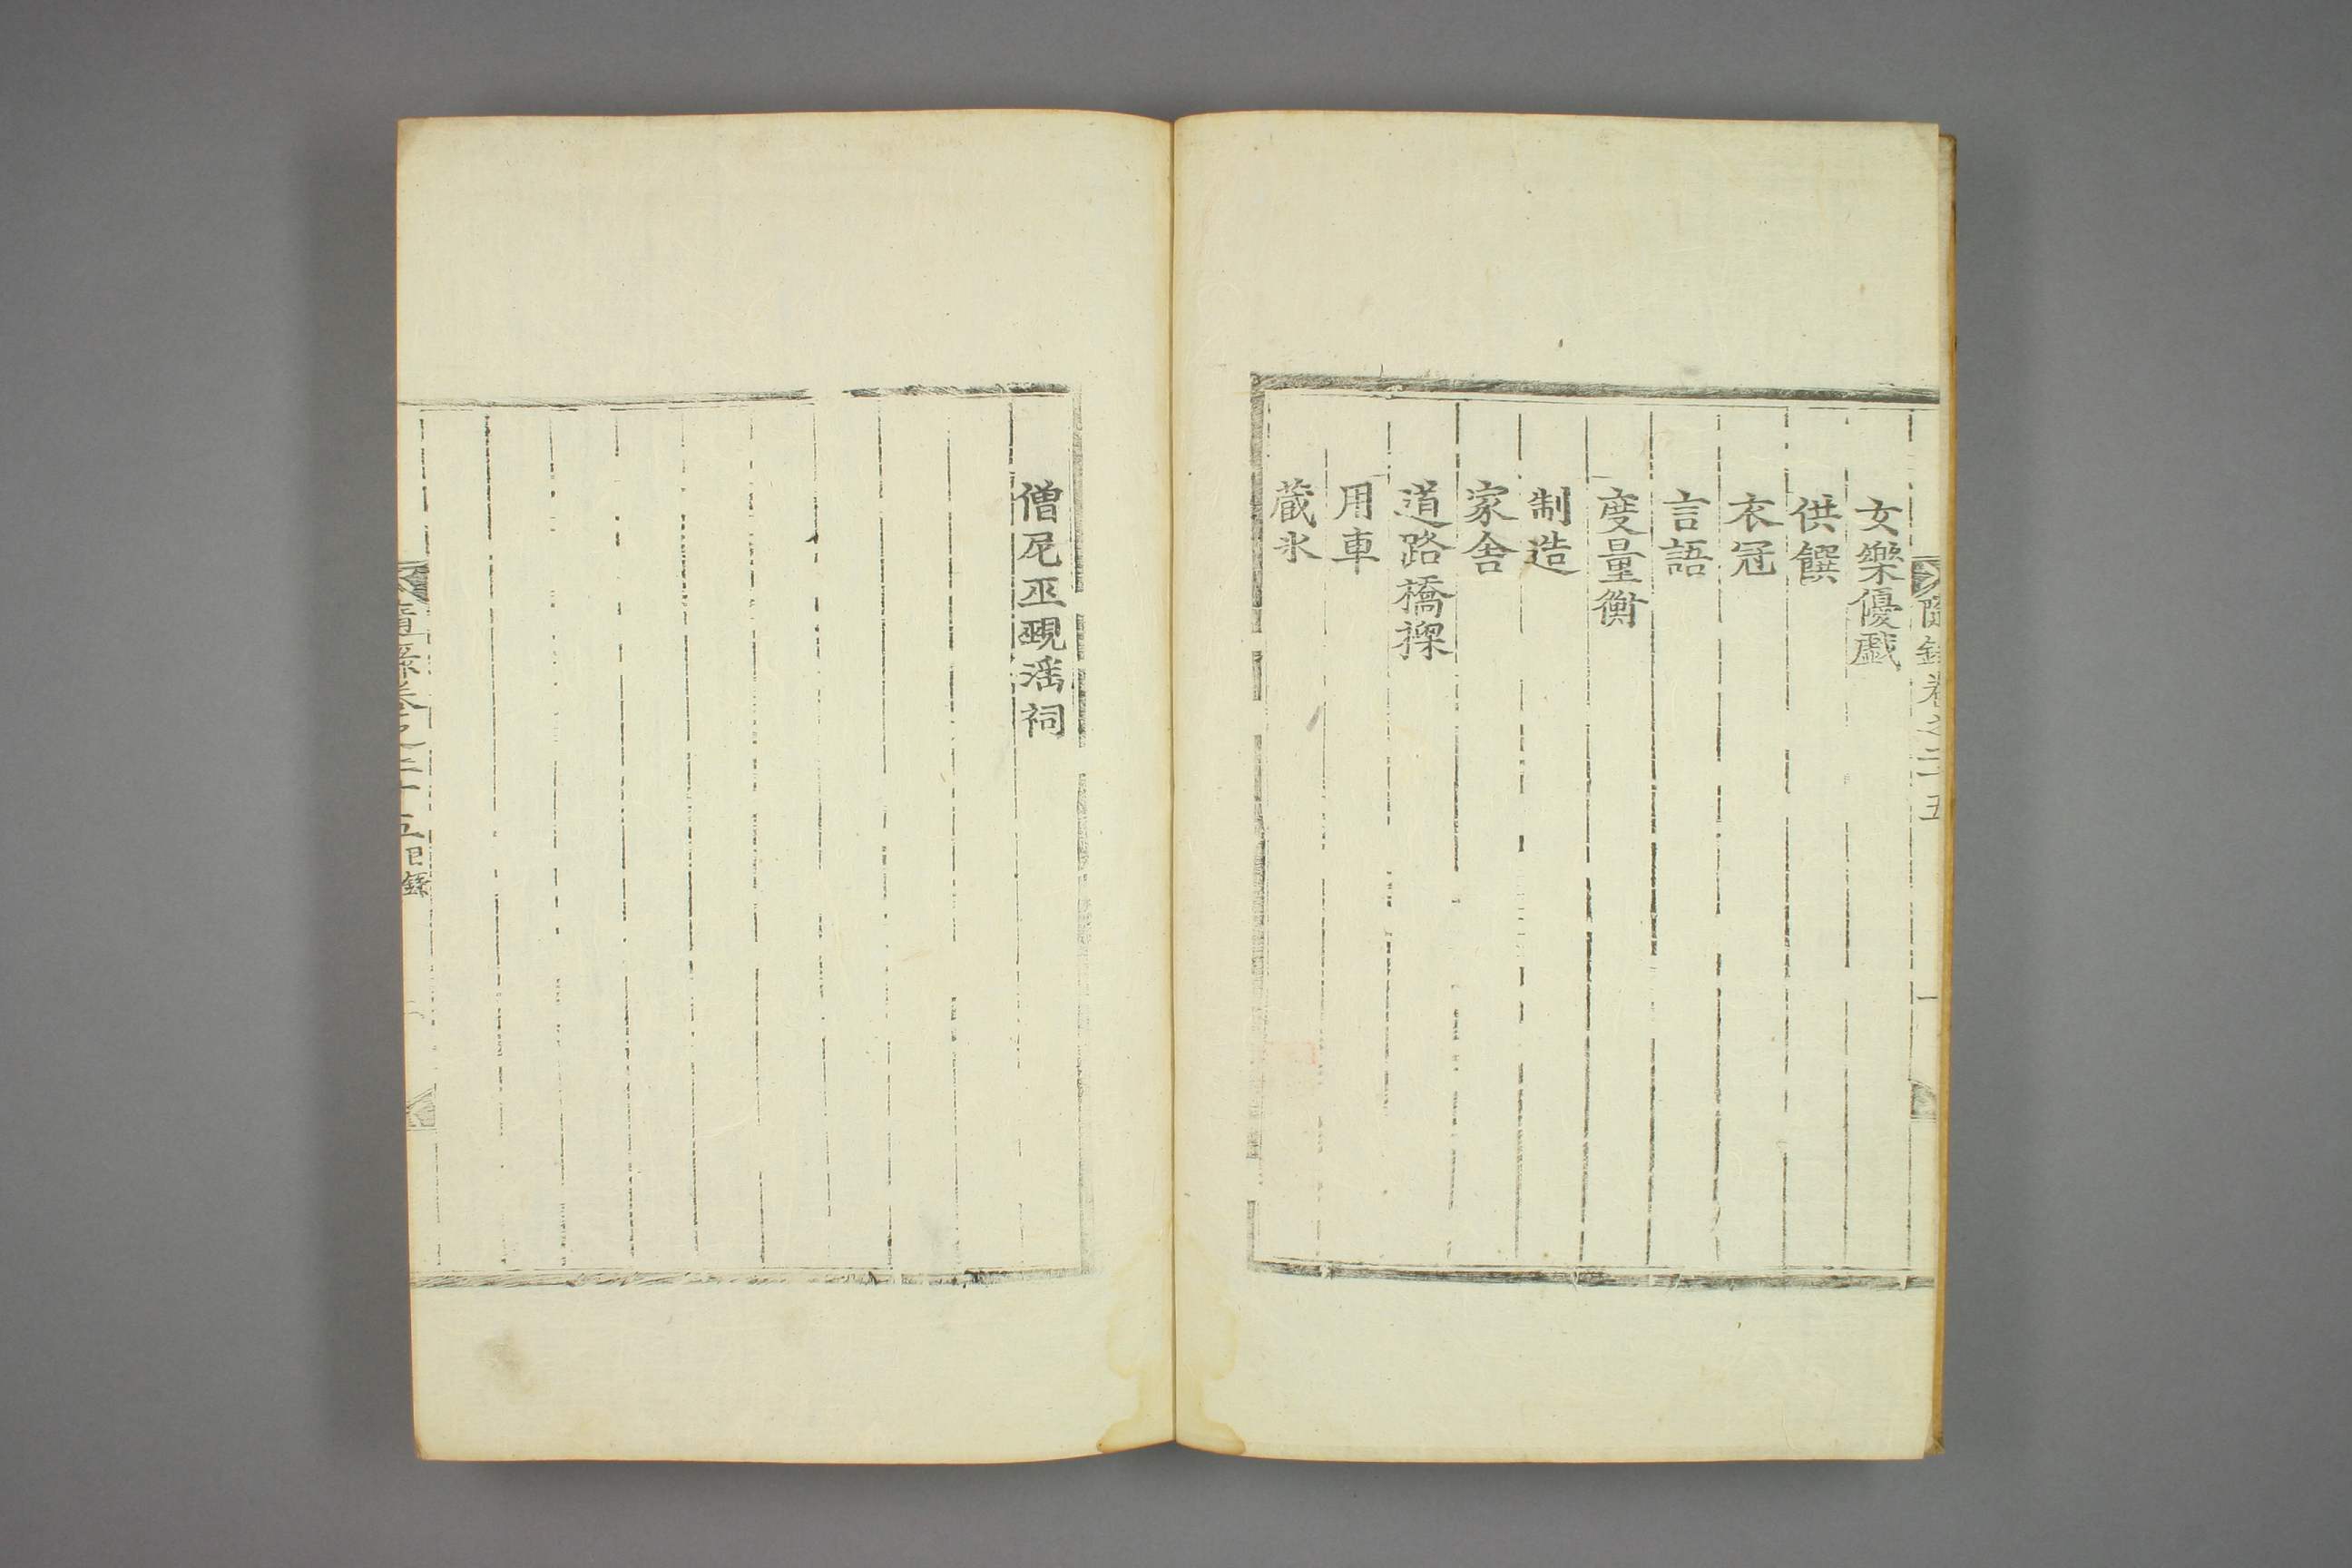 隨錄卷之二十五 一
女樂優戱
供饌
衣冠
言語
度量衡
制造
家舍
道路橋樑
用車
蔵氷
僧尼巫覡滛祠
隨錄卷之二十五目錄